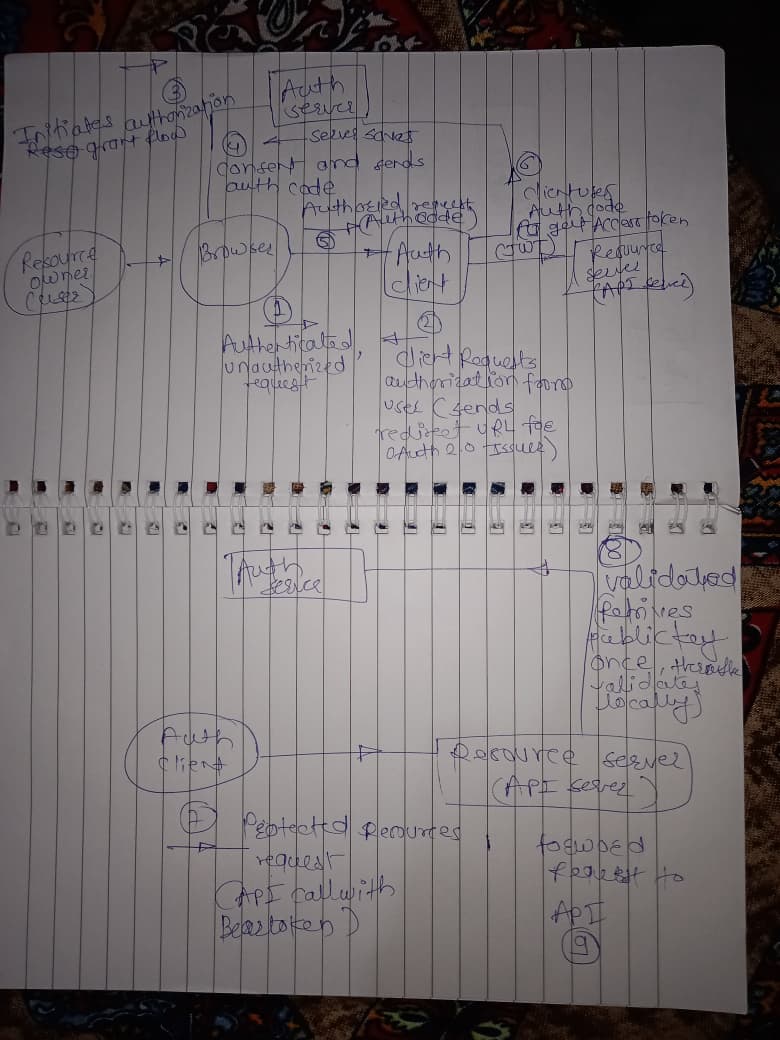 ③
Initiates authorization
grant flow
Auth
server
④ server saves
consent and sends
auth code
Authorized request
(Auth code)
⑤
⑥
client uses
Auth code
to get Access token
(JWT)
Resource
owner
(user)
Browser
Auth
client
Resource
server
(API server)
①
Authenticated,
unauthorized
request
②
Client Requests
authorization from
user (sends
redirect URL for
OAuth 2.0 Issuer)
Auth
⑧
validated
public key
once,
validates
locally)
Auth
client
Resource server
(API server)
⑦ Protected Resources
request
(API call with
Bear token)
request to
API
⑨